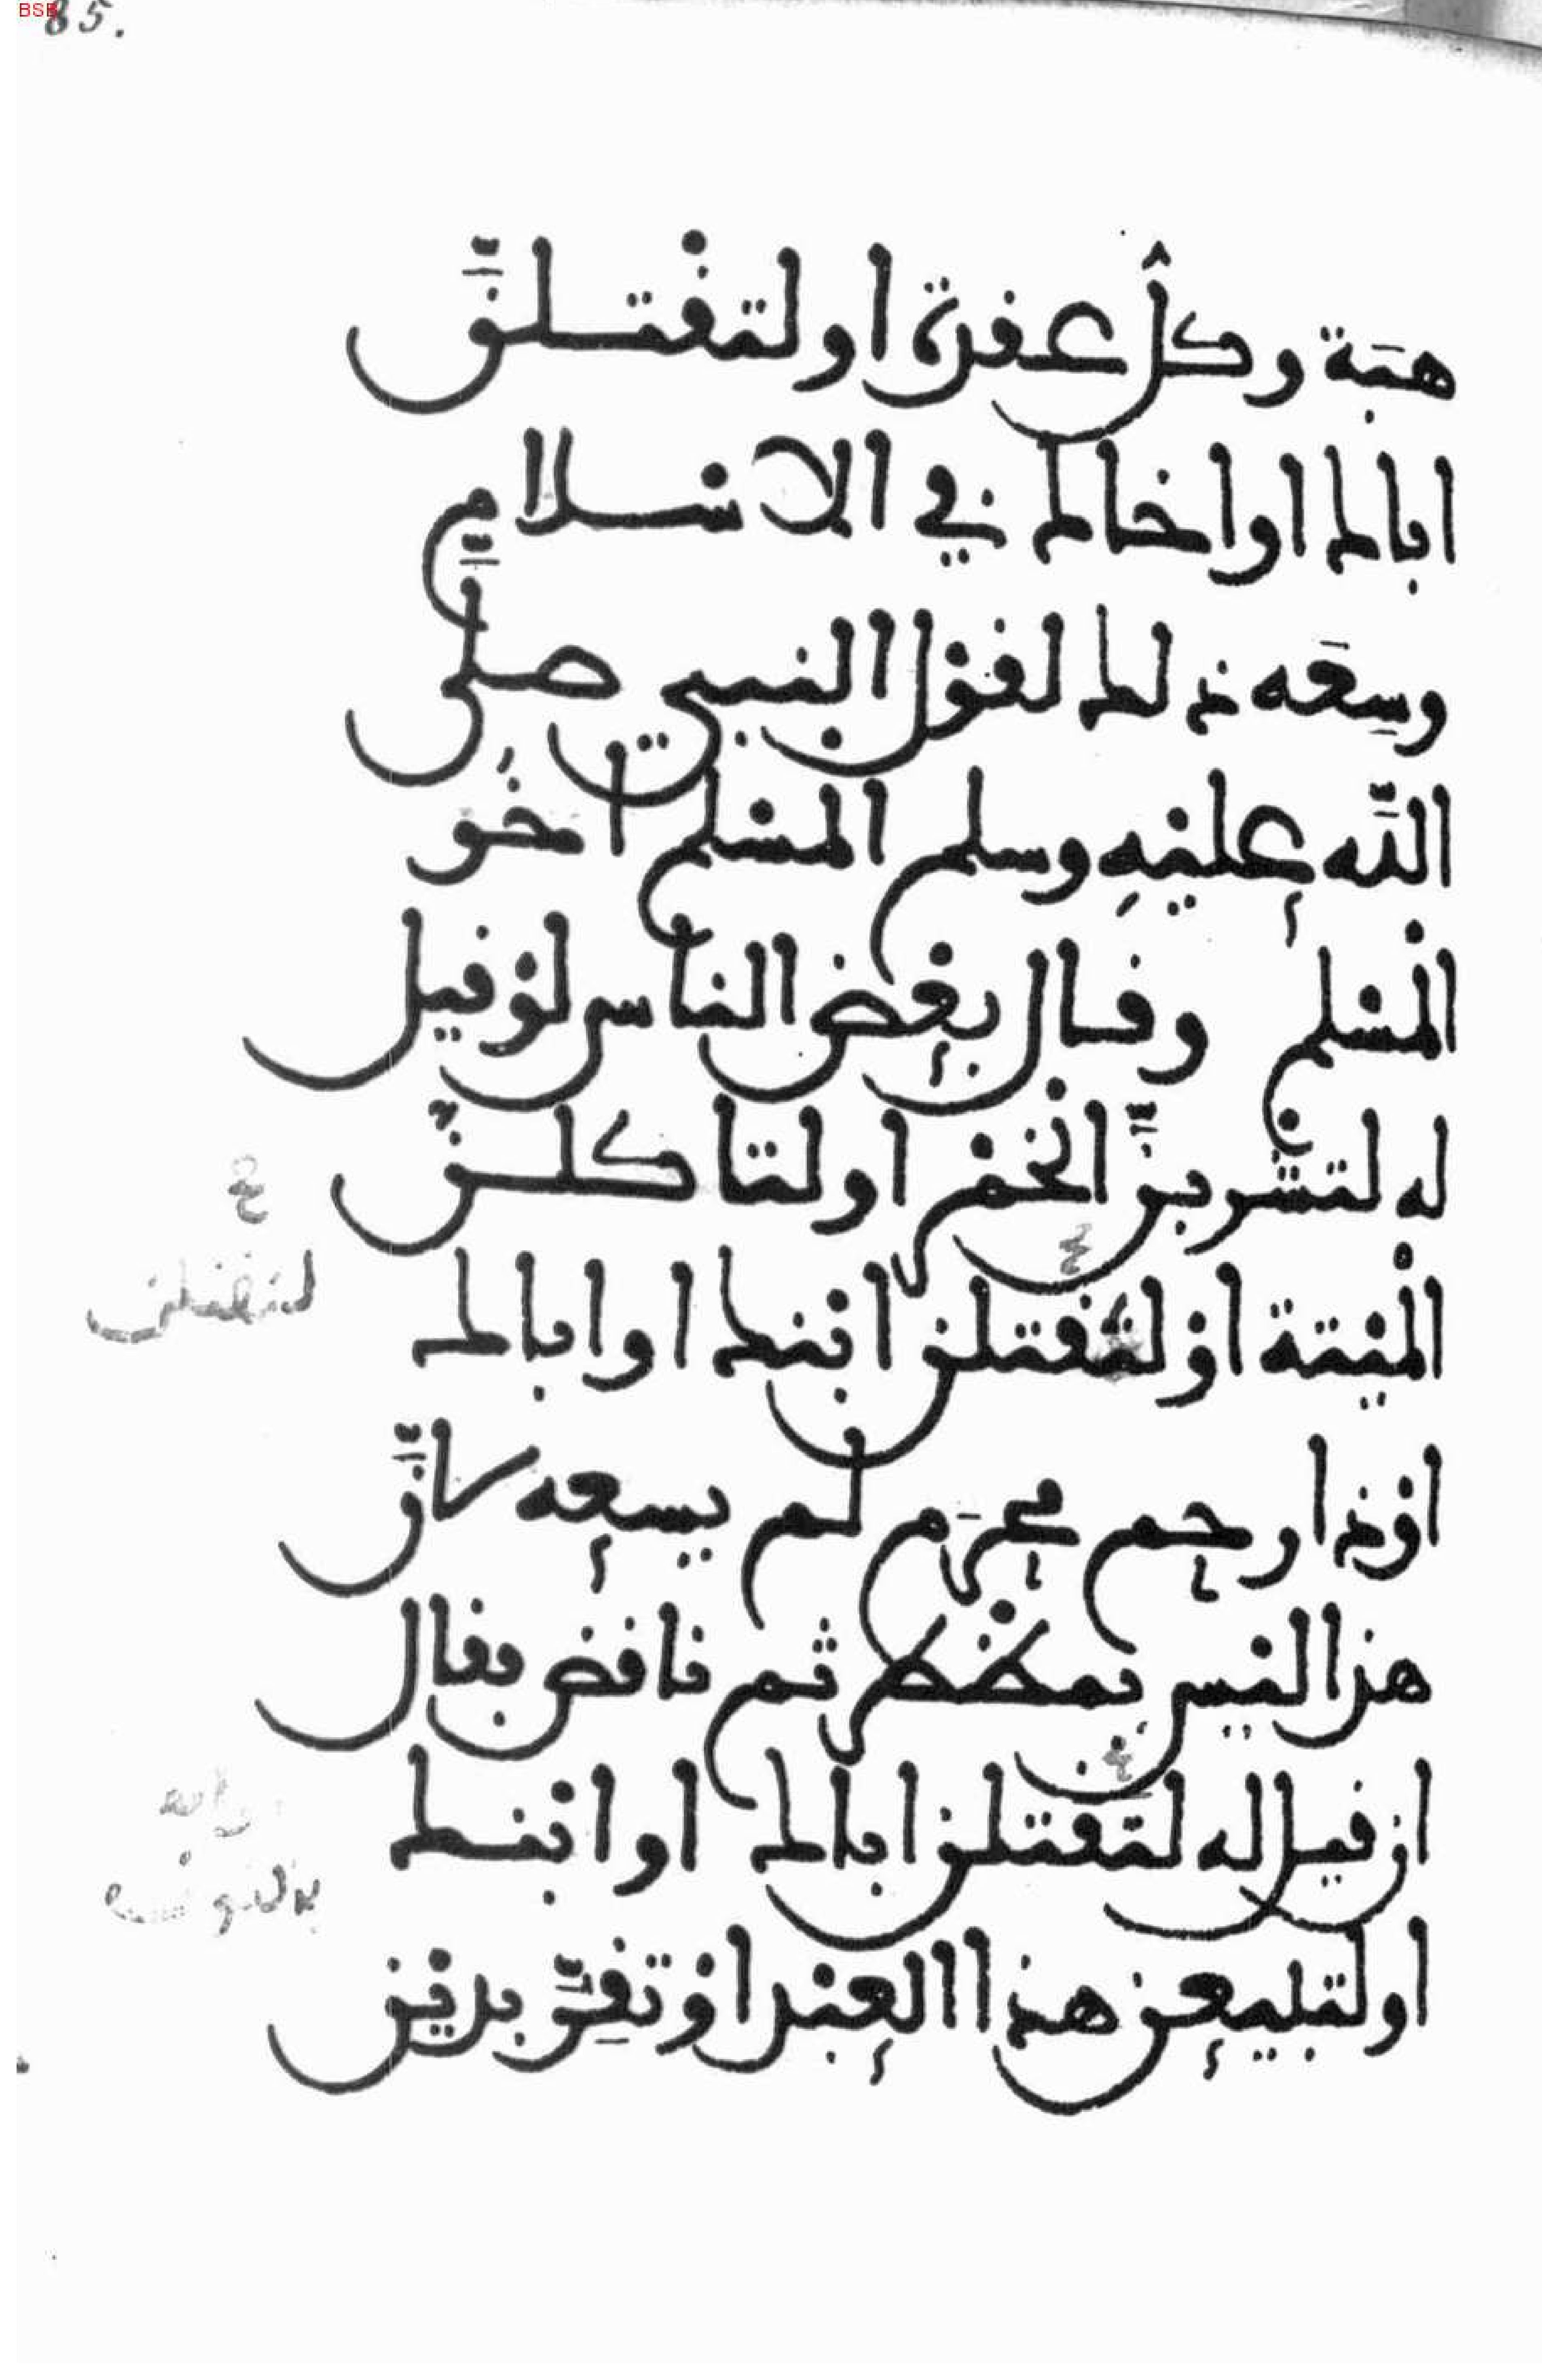 85.
هبة وكل عقدة او لتقتلنّ
اباك او اخاك في الاسلام
وسعه ذلك لقول النبي صلى
الله عليه وسلم المسلم اخو
المسلم وقال بعض الناس لو قيل
له لتشربنّ الخمر او لتاكلنّ
الميتة او لتقتلن ابنك او اباك
لنقتلن
او ذا رحم محرم لم يسعه لانّ
هذا ليس بمضطر ثم ناقض بقال
ان قيل له لتقتلن اباك او ابنك
او لتبيعن هذا العبد او تقرّ بدين